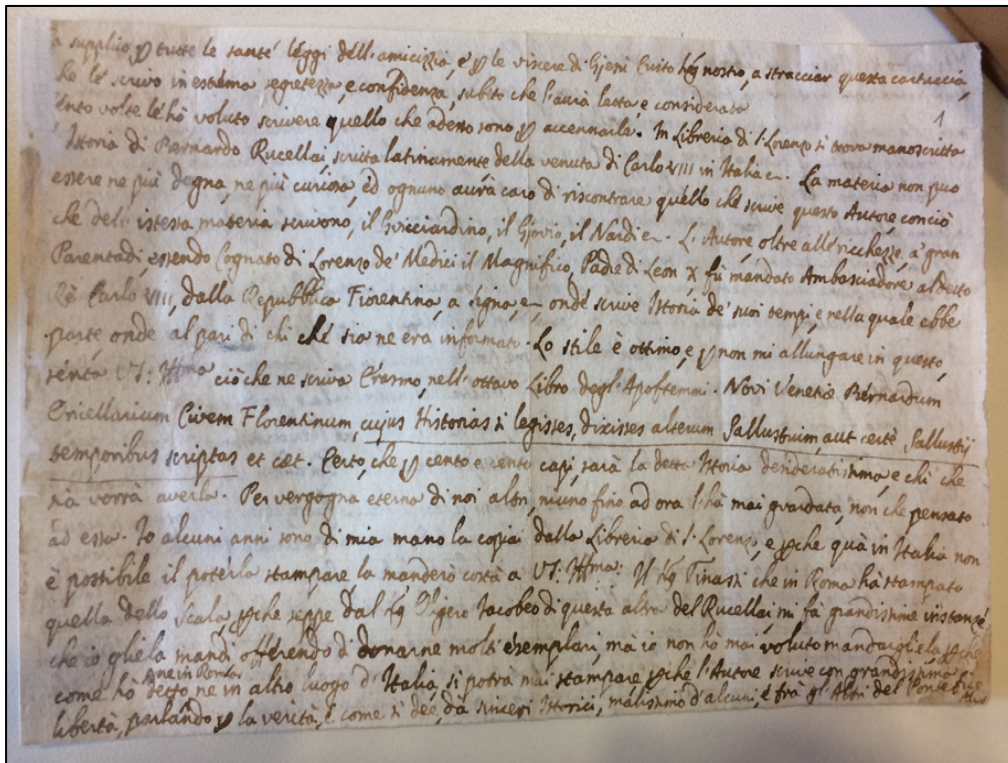 a supplico p tutte le sante leggi dell'amicizia, e p le viscere di Giesù Cristo Sig nostro, a stracciar questa cartuccia,
che le scrivo in estrema segretezza, e confidenza, subito che l'avrà letta, e considerata
1
volte le hò voluto scrivere quello che adesso sono p accennarle. In Libreria di S. Lorenzo si trova manoscritta
Istoria di Bernardo Rucellai, scritta latinamente della venuta di Carlo VIII in Italia e. La materia non può
essere ne più degna, ne più curiosa, ed ognuno avrà caro di riscontrare quello che scrive questo Autore, con ciò
che dell' istessa materia scrivono, il Guicciardino, il Giovio, il Nardi e. L'Autore, oltre alle ricchezze, a' gran
Parentadi, essendo Cognato di Lorenzo de' Medici il Magnifico, Padre di Leon X fù mandato Ambasciadore al detto
Rè Carlo VIII, dalla Repubblica Fiorentina, a Signa, e onde scrive Istoria de' suoi tempi, e nella quale ebbe
parte, onde al pari di chi che sia ne era informato. Lo stile è ottimo, e p non mi allungare in questo,
senta VS: Illma ciò che ne scriva Erasmo, nell'ottavo Libro degl'Apoftemmi. Novi Venetiæ Bernardum
Oricellarium Civem Florentinum, cujus Historias si legisses, dixisses alterum Sallustium, aut certè Sallustij
temporibus scriptas et cæt. Certo, che p cento e cento capi, sarà la detta Istoria desideratissima, e chi che
sia vorrà averla. Per vergogna eterna di noi altri, niuno fino ad ora l'hà mai guardata, non che pensato
ad essa. Io alcuni anni sono di mia mano la copiai dalla Libreria di S. Lorenzo, e pche quà in Italia non
è possibile il poterla stampare la manderò costà a VS: Illma: Il Sig Tinassi che in Roma hà stampato
quella dello Scala pche seppe dal Sig Oligero Jacobeo di questa altra del Rucellai, mi fà grandissime instanze
che io gliela mandi offerendo d donarne molti esemplari, mà io non hò mai voluto mandargliela pche
come hò detto, ne in Roma ne in altro luogo d'Italia, si potrà mai stampare pche l'Autore scrive con grandissima
libertà, parlando p la verità, e come si dee, da sinceri Istorici, malissimo d'alcuni, e fra gl'Altri del Pontefice